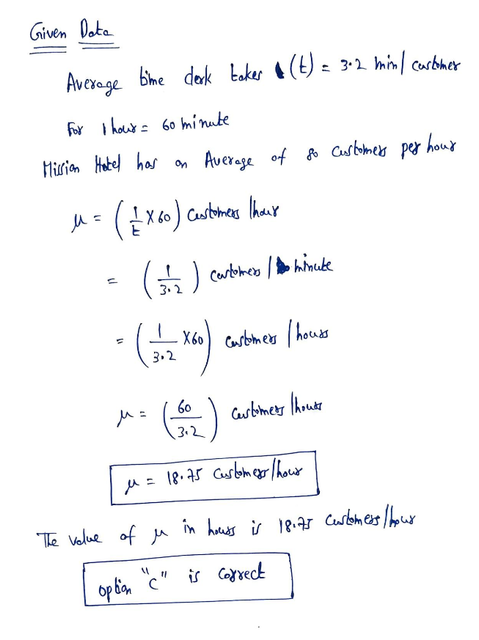 Given Data
Average time desk takes (t) = 3.2 min/customer
For 1 hour = 60 minute
Mission Hotel has an Average of 80 customers per hour
μ = (1/t × 60) Customers/hour
= (1/3.2) customers/minute
= (1/3.2 × 60) customers/hours
μ = (60/3.2) customers/hours
μ = 18.75 customers/hour
The value of μ in hours is 18.75 customers/hour
option "C" is correct